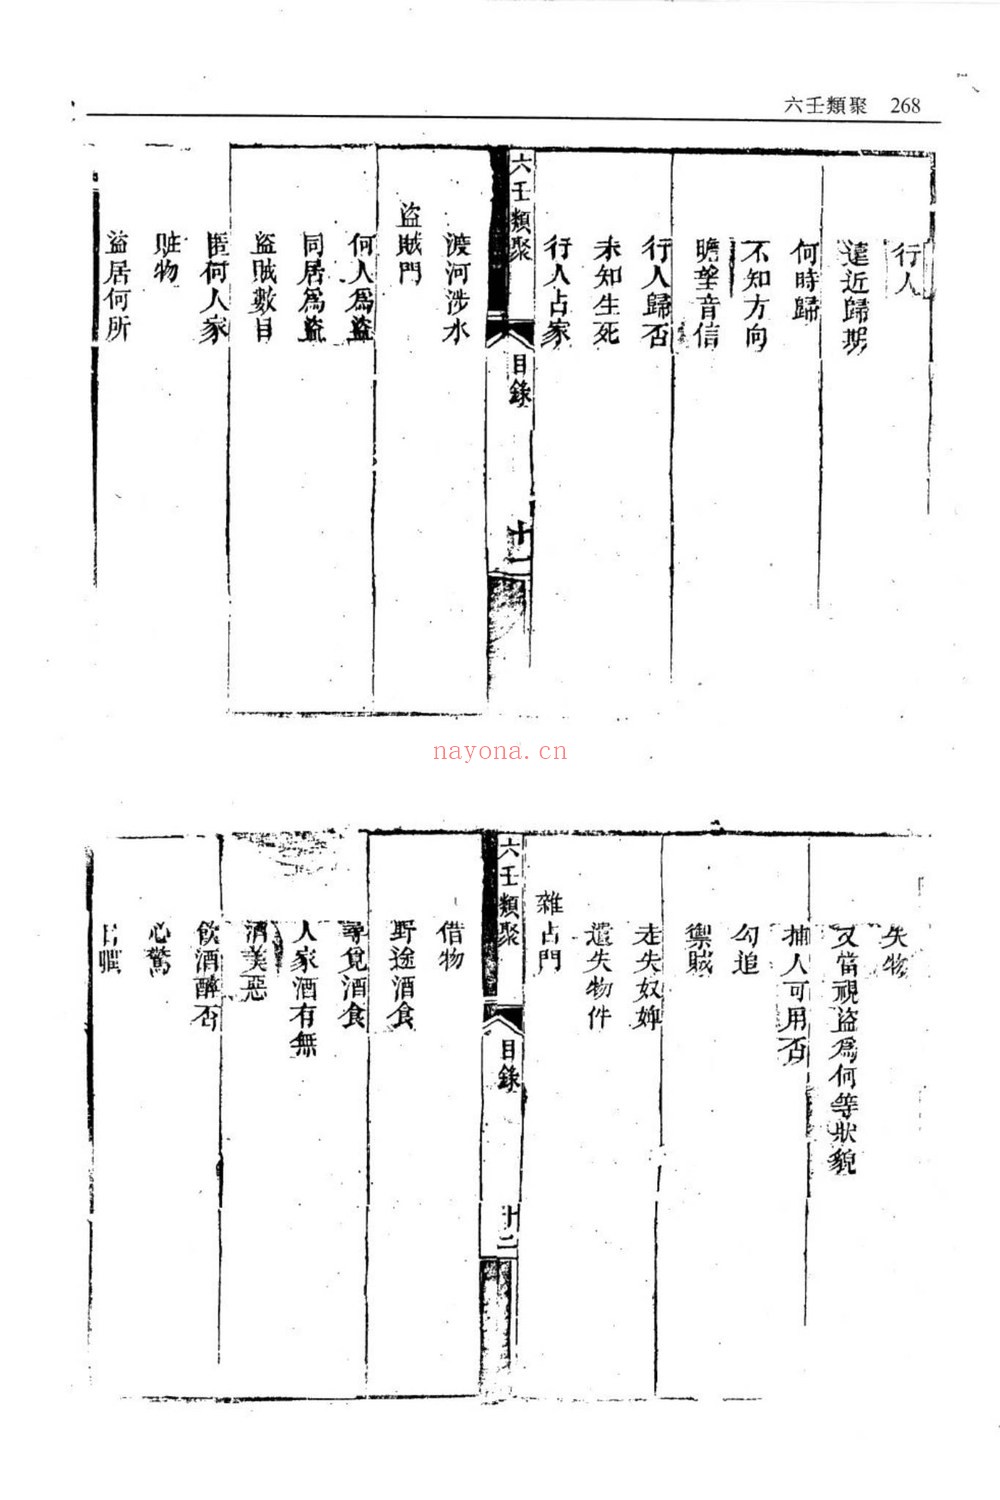 六壬類聚 268
行人
遠近歸期
何時歸
不知方向
瞻望音信
行人歸否
未知生死
行人占家
六壬類聚 目錄 十一
渡河涉水
盜賊門
何人爲盜
同居爲盜
盜賊數目
匿何人家
賍物
盜居何所
nayona.cn
失物
又當視盜爲何等狀貌
捕人可用否
勾追
禦賊
走失奴婢
遺失物件
雜占門
六壬類聚 目錄 十二
借物
野途酒食
尋覓酒食
人家酒有無
酒美惡
飲酒醉否
心驚